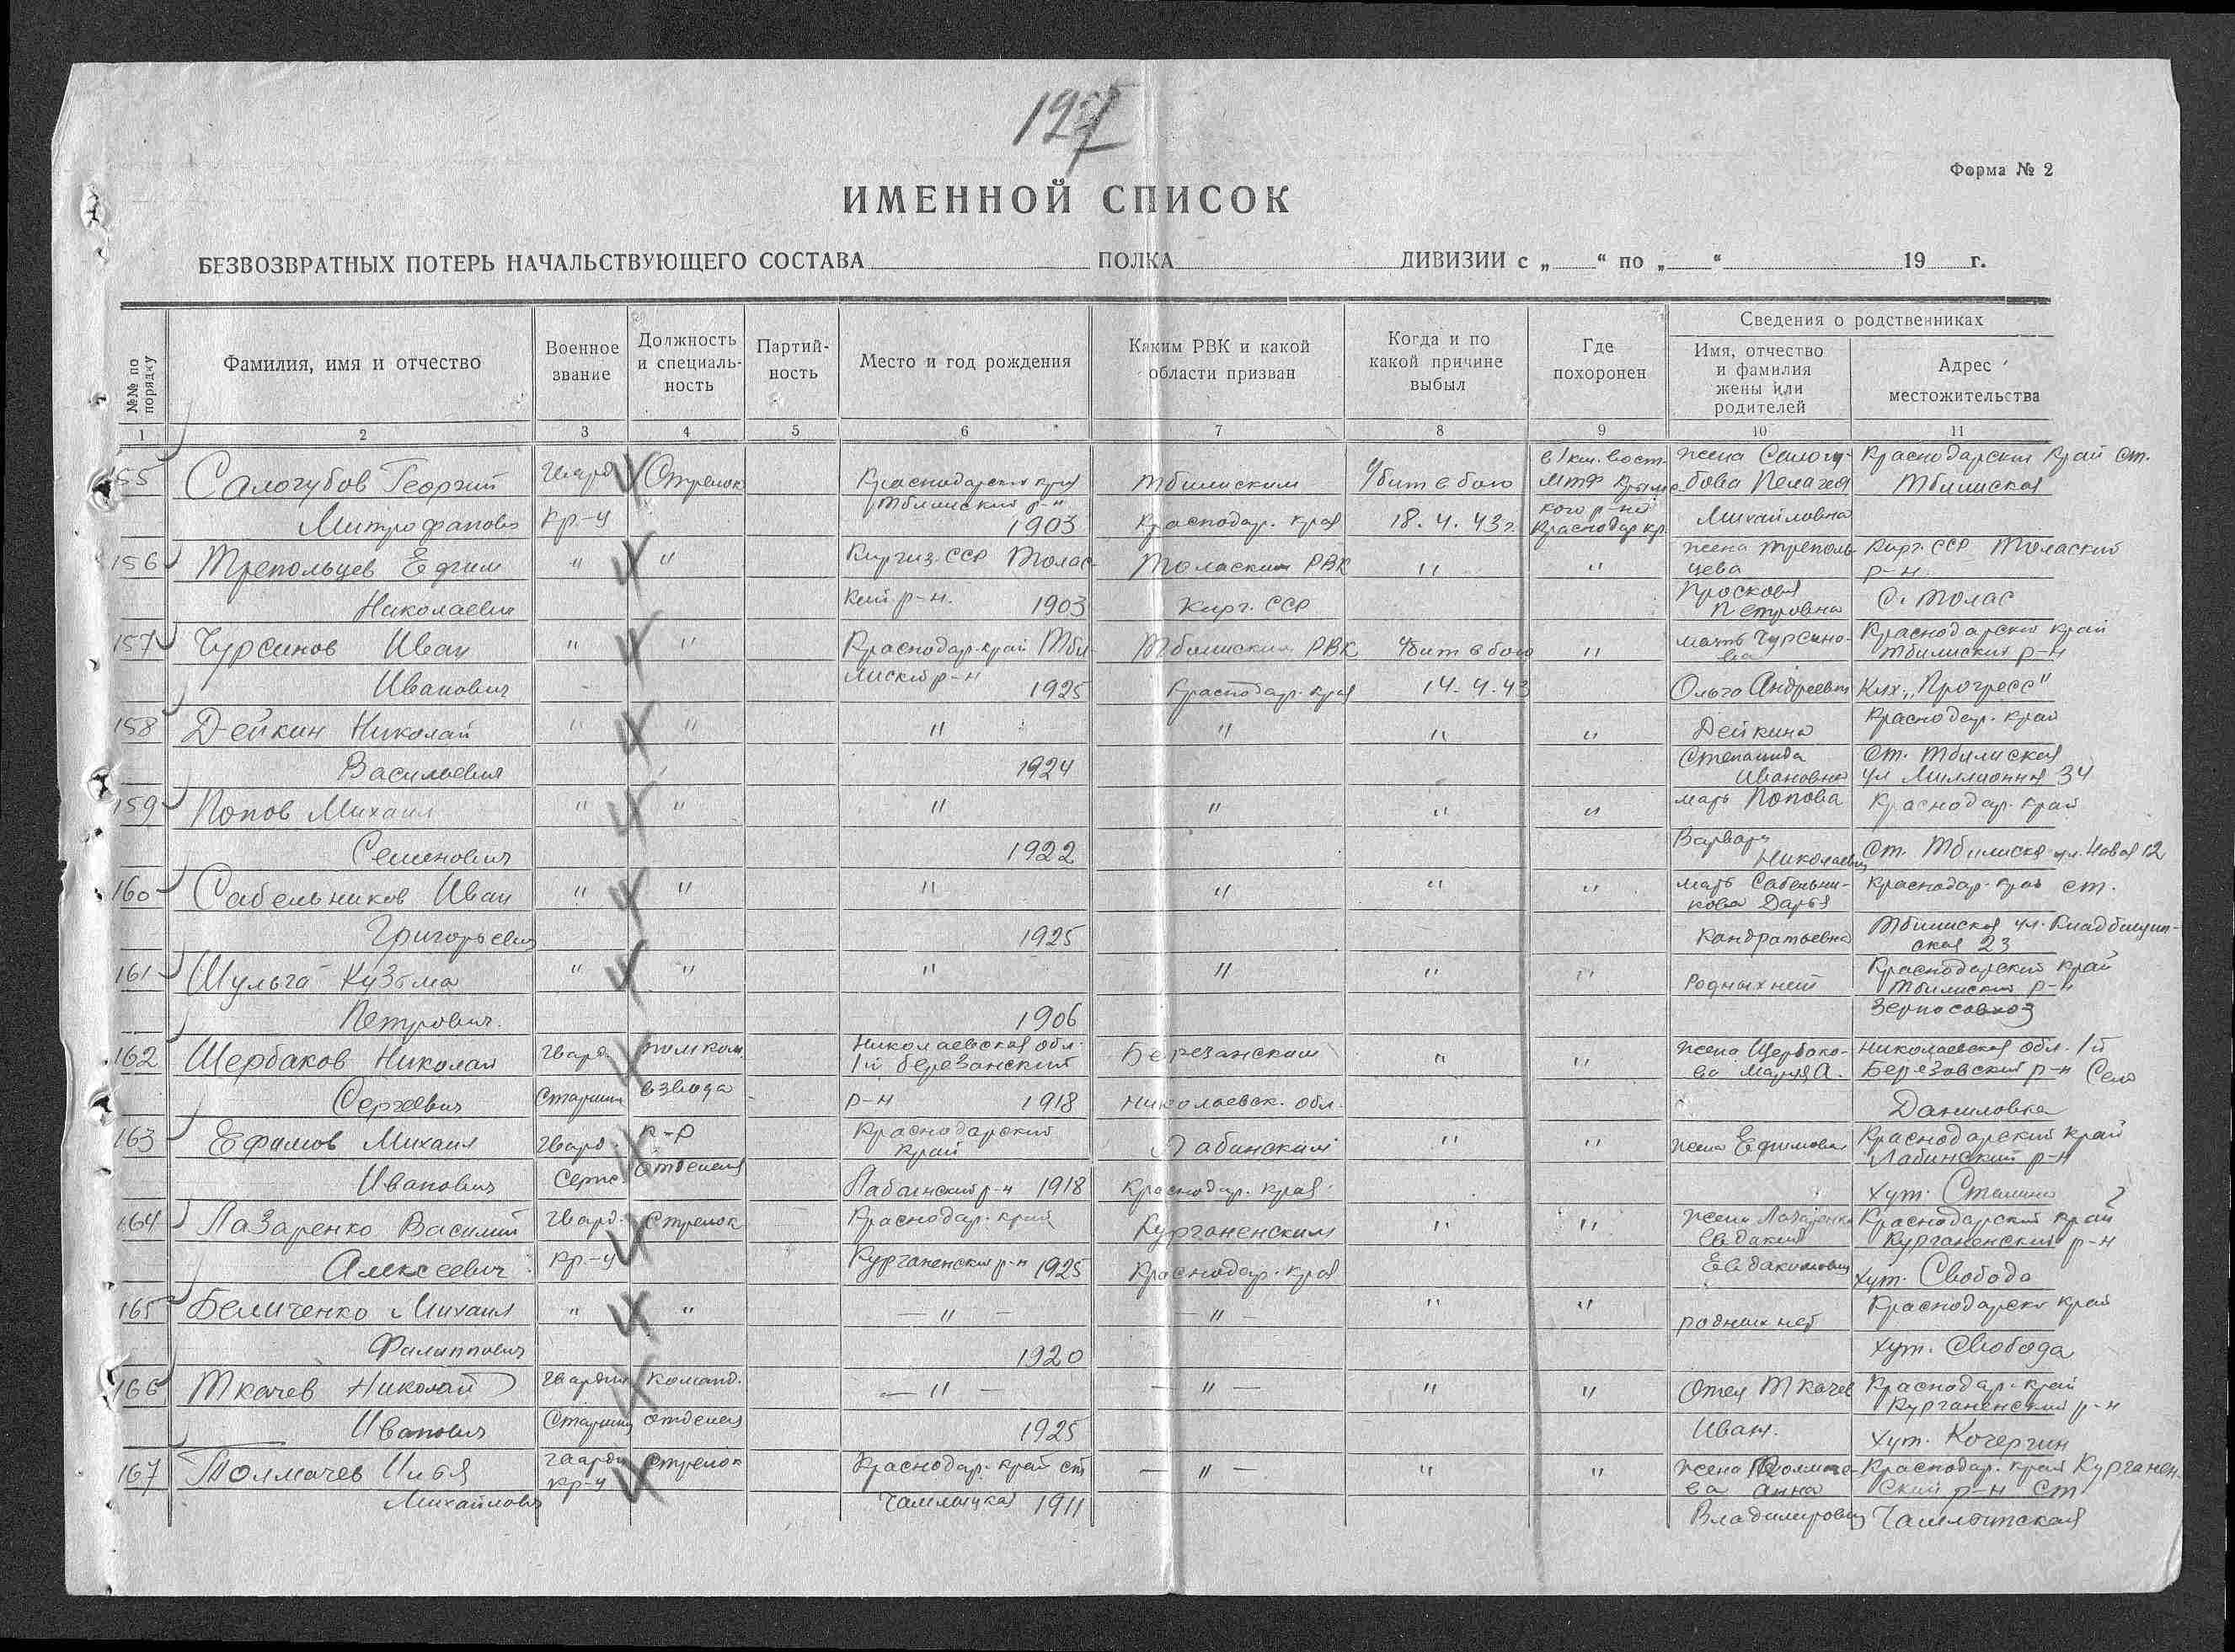 127
Форма № 2
ИМЕННОЙ СПИСОК
БЕЗВОЗВРАТНЫХ ПОТЕРЬ НАЧАЛЬСТВУЮЩЕГО СОСТАВА ПОЛКА ДИВИЗИИ с „ “ по „ “ 19 г.
№№ по порядку
Фамилия, имя и отчество
Военное звание
Должность и специаль-ность
Партий-ность
Место и год рождения
Каким РВК и какой области призван
Когда и по какой причине выбыл
Где похоронен
Сведения о родственниках
Имя, отчество и фамилия жены или родителей
Адрес местожительства
1 2 3 4 5 6 7 8 9 10 11
155 Салогубов Георгий Гвард Стрелок Краснодарский край Тбилиским Убит в бою в 1 км. вост. МТФ жена Салогу-бова Пелагея Краснодарский край ст. Тбилиская
Митрофанович кр-ц Тбилиский р-н 1903 Краснодар. края 18.4.43г кого р-на Краснодар кр. Михайловна
156 Трепольцев Ефим " " Киргиз. ССР Толас- Толаским РВК " " жена Треполь-цева Кирг. ССР Толаский р-н
Николаевич кий р-н. 1903 Кирг. ССР Просковя Петровна с. Толас
157 Чурсинов Иван " " Краснодар. край Тби- Тбилиским РВК Убит в бою " мать Чурсино-ва Краснодарский край Тбилиский р-н
Иванович лиский р-н 1925 Краснодар. края 14.4.43 Ольга Андреевна Клх. „Прогресс"
158 Дейкин Николай " " " " " " Дейкина Краснодар. край
Васильевич 1924 Степанида Ивановна ст. Тбилиская ул Миллионная 34
159 Попов Михаил " " " " " " мать Попова Краснодар. край
Семенович 1922 Варвара Николаевна ст. Тбилиская ул. Новая 12
160 Сабельников Иван " " " " " " мать Сабельни-кова Дарья Краснодар. край ст.
Григорьевич 1925 Кандратьевна Тбилиская ул. 23
161 Шульга Кузьма " " " " " " Родных нет Краснодарский край Тбилиский р-н
Петрович 1906 Зерносовхоз
162 Щербаков Николай Гвард. помком Николаевская обл. 1й березанский Березанским " " жена Щербако-ва Мария А. Николаевская обл. 1й Березовский р-н Село
Сергеевич Старшин взвода р-н 1918 Николаевск. обл. Даниловка
163 Ефимов Михаил Гвард. к-р Краснодарский край Лабинским " " жена Ефимова Краснодарский край Лабинский р-н
Иванович Серж отделения Лабинский р-н 1918 Краснодар. края. хут. Сталина
164 Лазаренко Василий Гвард. Стрелок Краснодар. край Курганенским " " жена Лазаренко Евдакия Краснодарский край Курганенский р-н
Алексеевич кр-ц Курганенский р-н 1925 Краснодар. края Евдакимовна хут. Свобода
165 Беличенко Михаил " " — " — — " — " " родных нет Краснодарский край
Филиппович 1920 хут. Свобода
166 Ткачев Николай Гвардии команд. — " — — " — " " Отец Ткачев Краснодар. край Курганенский р-н
Иванович Старшин отделен 1925 Иван. хут. Кочергин
167 Толмачев Илья гвардии Стрелок Краснодар. край ст — " — " " жена Толмаче-ва Анна Краснодар. край Курганен-ский р-н ст
Михайлович кр-ц Чамлыцкая 1911 Владимировна Чамлыцская